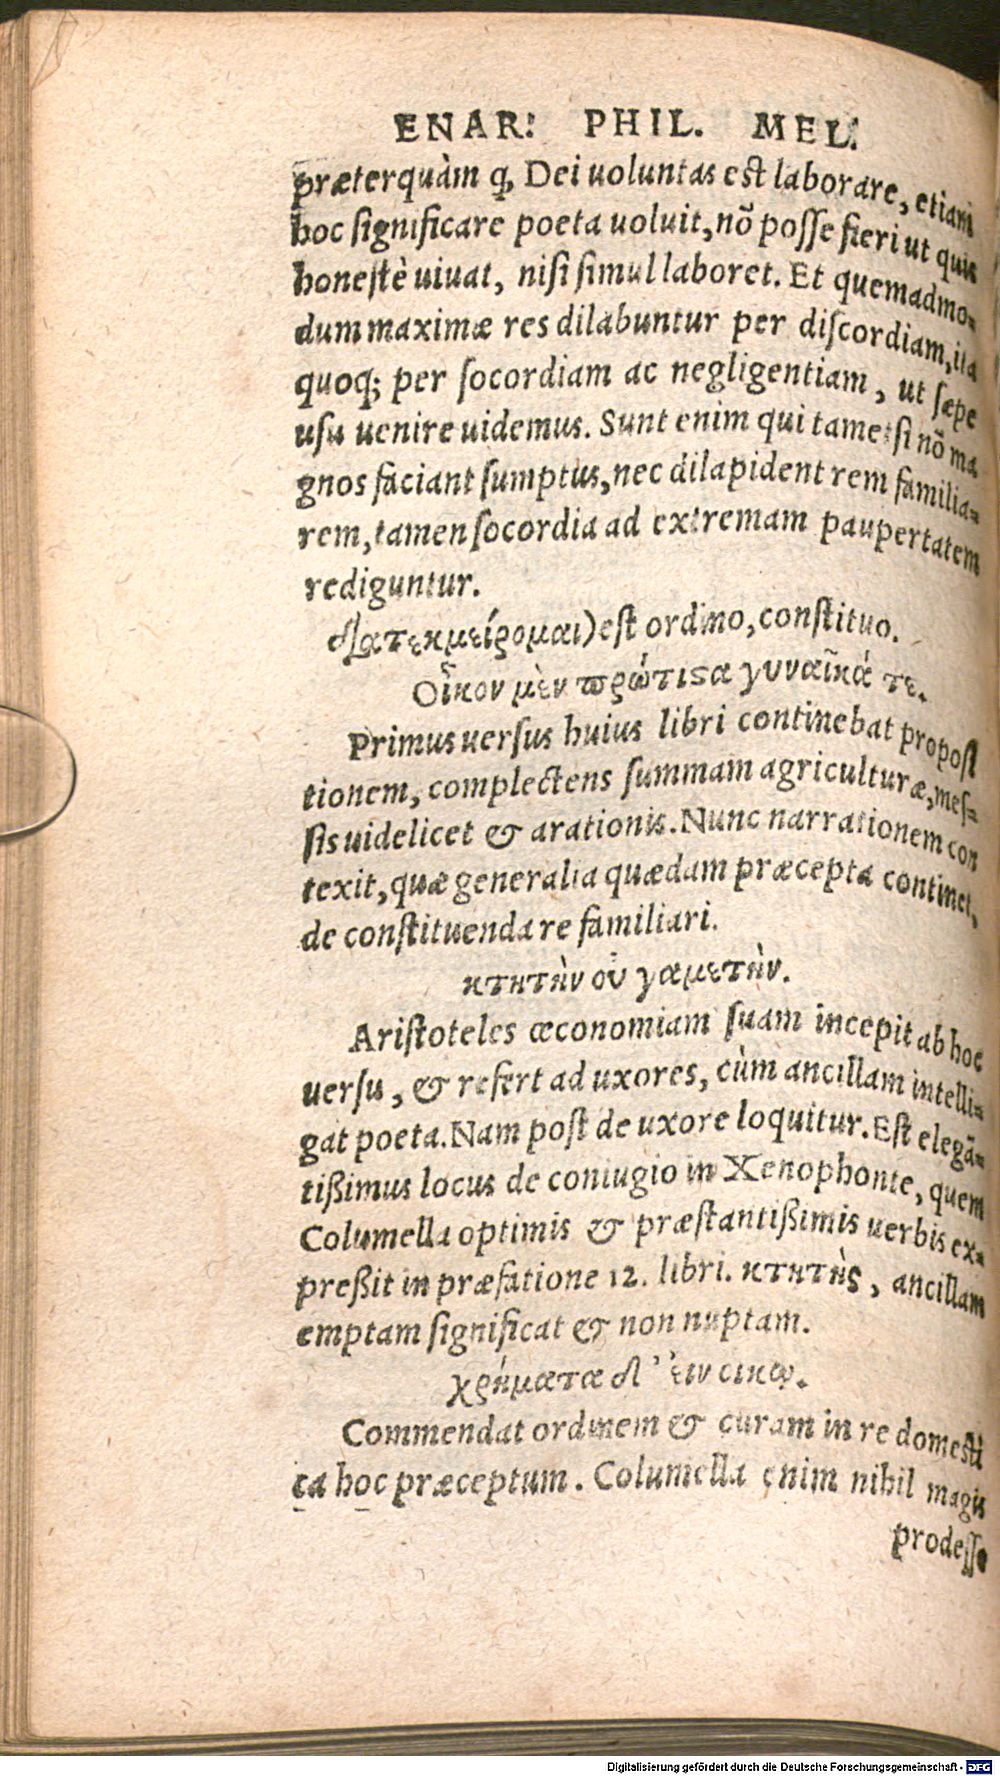 ENAR: PHIL. MEL.
præterquàm q̃ Dei uoluntas est laborare, etiam
hoc significare poeta uoluit, nõ posse fieri ut quis
honestè uiuat, nisi simul laboret. Et quemadmo-
dum maximæ res dilabuntur per discordiam, ita
quoq; per socordiam ac negligentiam, ut sæpe
usu uenire uidemus. Sunt enim qui tametsi nõ ma
gnos faciant sumptus, nec dilapident rem familia-
rem, tamen socordia ad extremam paupertatem
rediguntur.
διατεκμείρομαι) est ordino, constituo.
Οἶκον μὲν πρώτιϛα γυναῖκά τε.
Primus uersus huius libri continebat proposi
tionem, complectens summam agriculturæ, mes-
sis uidelicet & arationis. Nunc narrationem con
texit, quæ generalia quædam præcepta continet,
de constituenda re familiari.
κτητὴν οὐ γαμετὴν.
Aristoteles œconomiam suam incepit ab hoc
uersu, & refert ad uxores, cùm ancillam intelli-
gat poeta. Nam post de uxore loquitur. Est elegã-
tißimus locus de coniugio in Xenophonte, quem
Columella optimis & præstantißimis uerbis ex-
preßit in præfatione 12. libri. κτητὴς, ancillam
emptam significat & non nuptam.
χρήματα δ' εἰν οικῳ.
Commendat ordinem & curam in re domesti
ca hoc præceptum. Columella enim nihil magis
prodesse
Digitalisierung gefördert durch die Deutsche Forschungsgemeinschaft - DFG